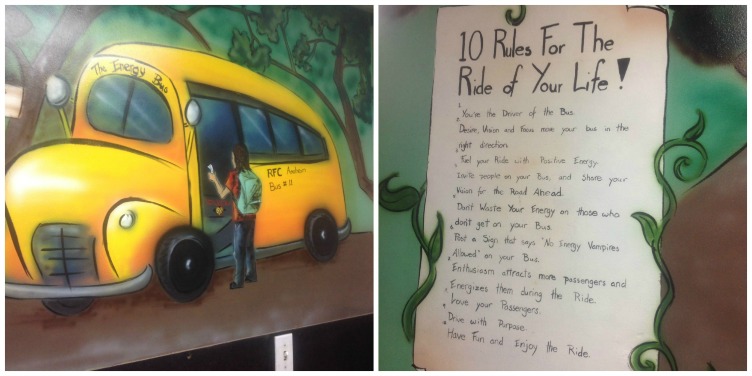 The Energy Bus
RFC Anaheim
Bus #11
10 Rules For The
Ride of Your Life!
You're the Driver of the Bus.
Desire, Vision and Focus move your bus in the
right direction.
Feel your Ride with Positive Energy.
Invite people on your Bus, and Share your
Vision for the Road Ahead.
Don't Waste Your Energy on those who
don't get on Your Bus.
Post a Sign that says "No Energy Vampires
Allowed" on your Bus.
Enthusiasm attracts more passengers and
Energizes them during the Ride.
Love your Passengers.
Drive with Purpose.
Have Fun and Enjoy the Ride.